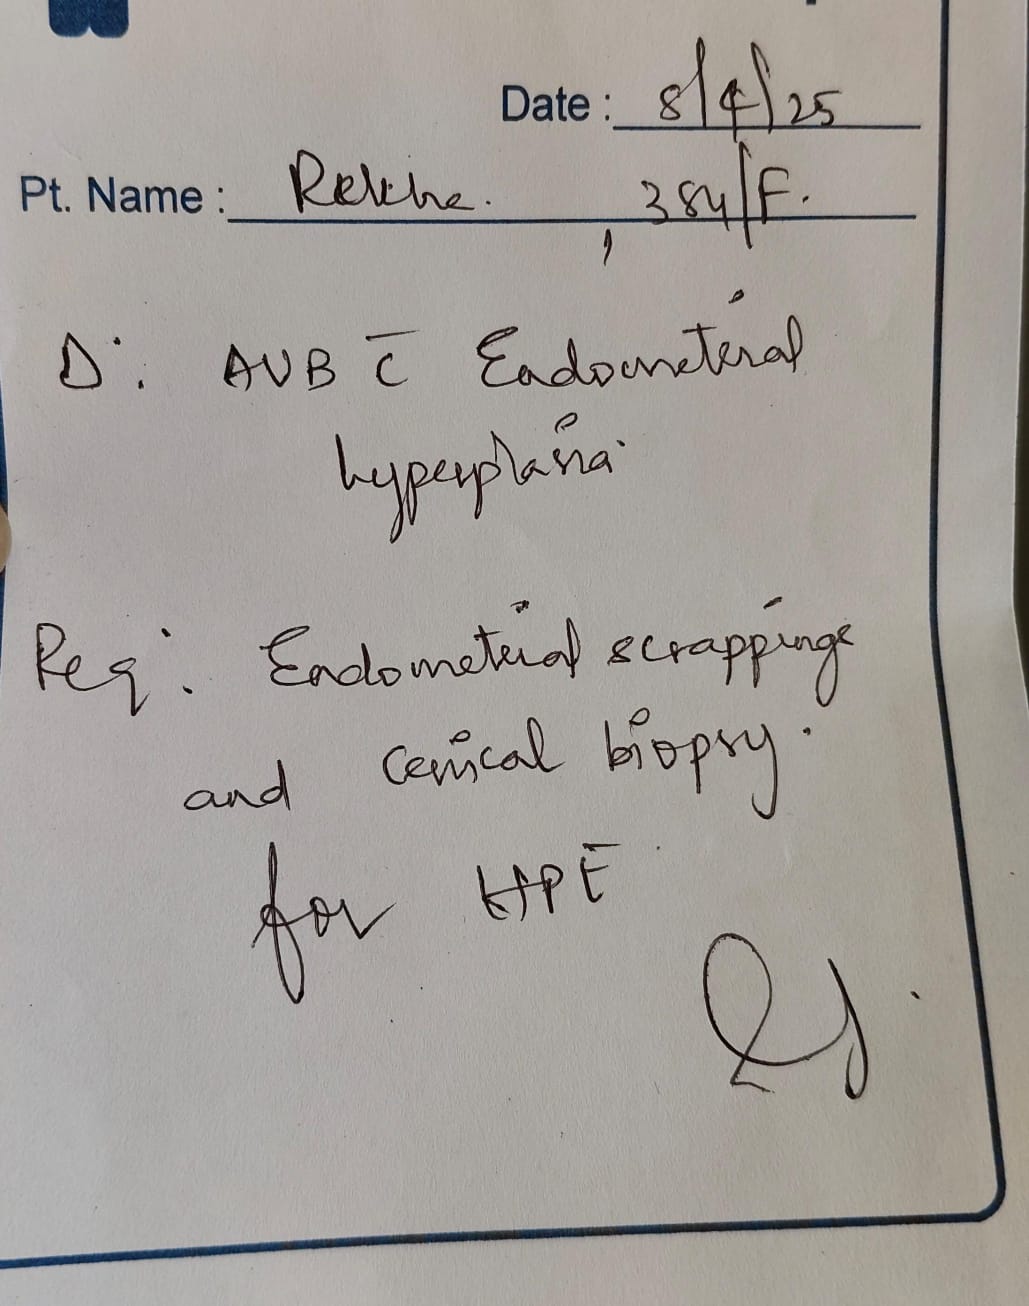 Date : 8/4/25
Pt. Name : Rekha. , 38y/F.
D: AUB c̅ Endometerial
hyperplasia
Req: Endometerial scrappings
and cervical biopsy.
for HPE